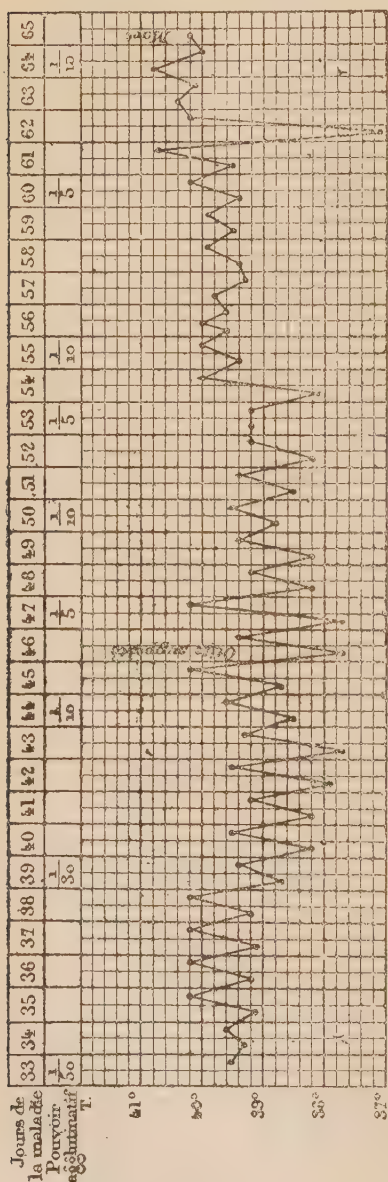 Jours de la maladie 33 34 35 36 37 38 39 40 41 42 43 44 45 46 47 48 49 50 51 52 53 54 55 56 57 58 59 60 61 62 63 64 65
Pouvoir agglutinatif 1/30 1/30 1/10 1/5 1/10 1/5 1/10 1/5 1/10
T.
41°
40°
39°
38°
37°
Otite suppurée
Mort